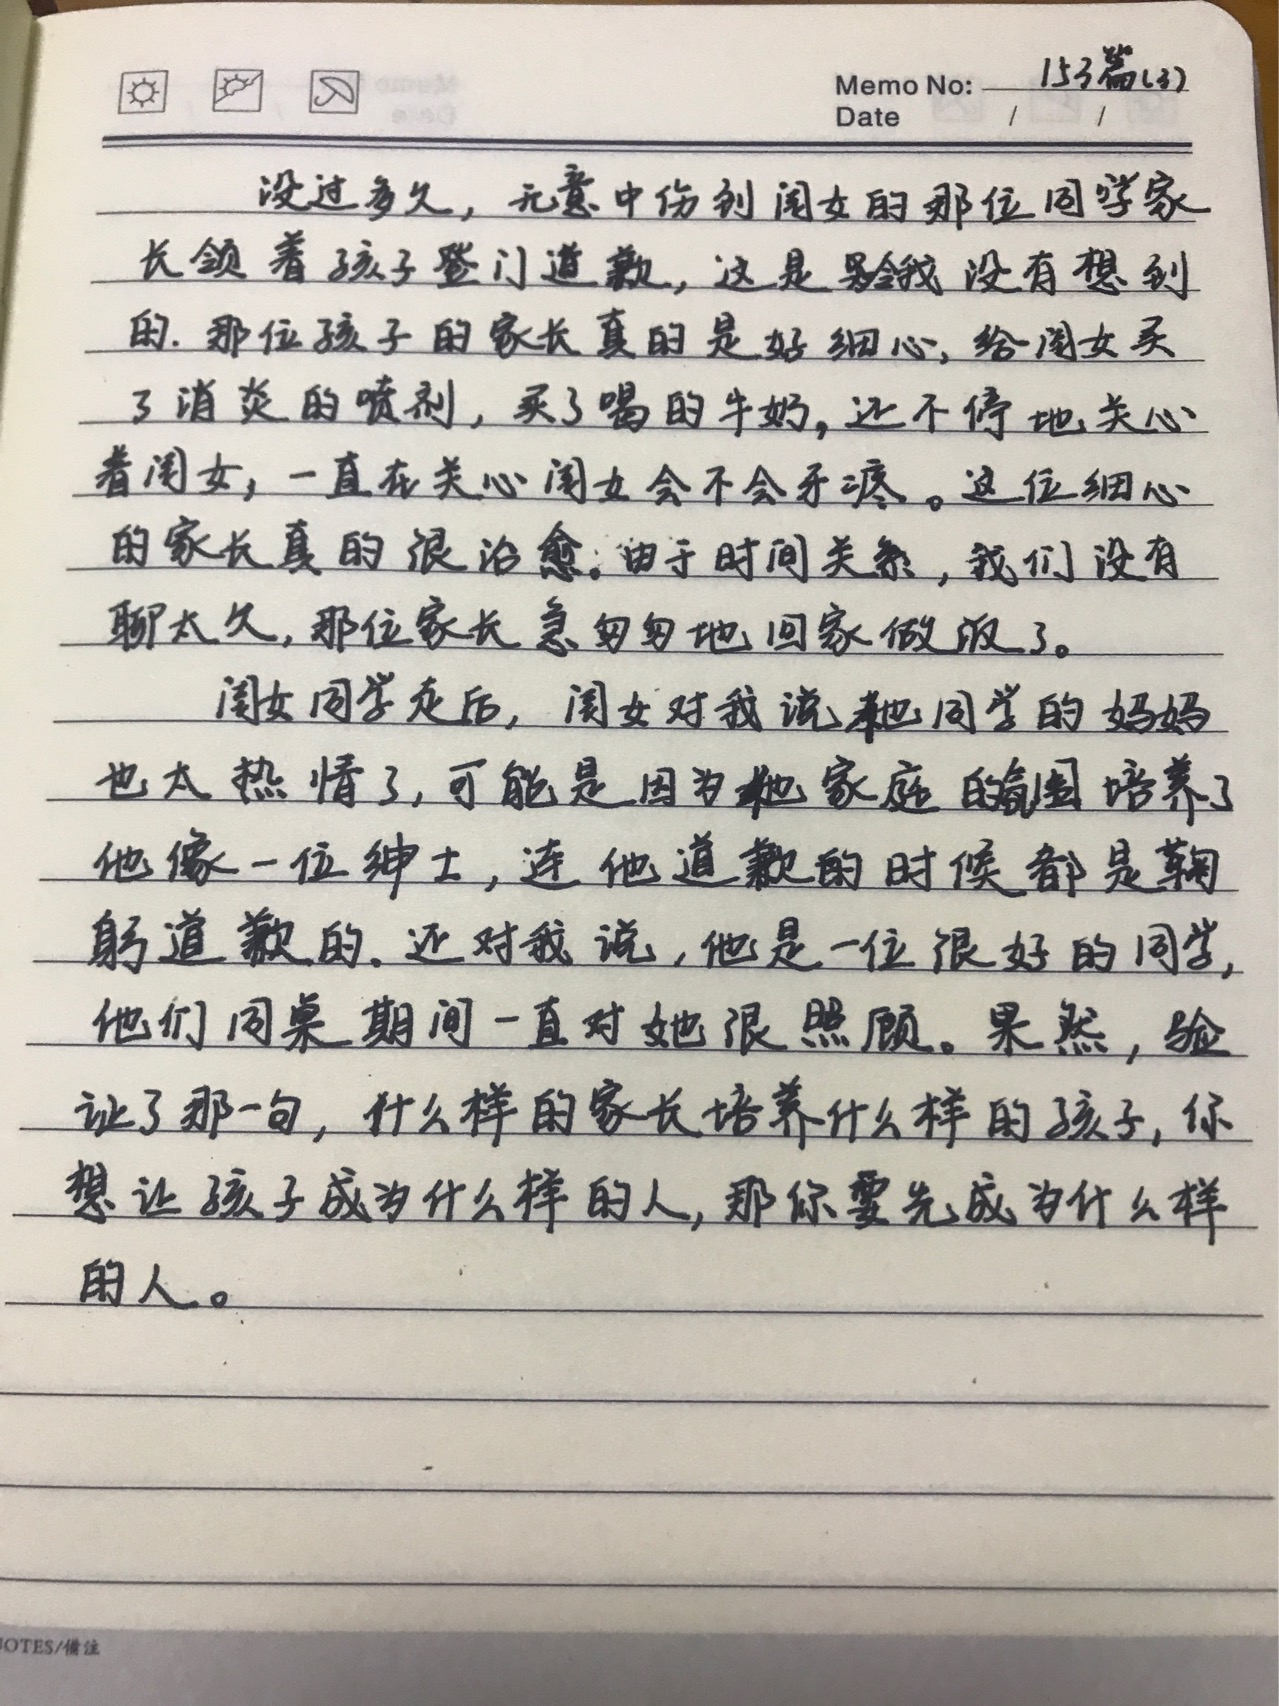 Memo No: 153篇(3)
Date / /
没过多久，无意中伤到闺女的那位同学家
长领着孩子登门道歉，这是我没有想到
的.那位孩子的家长真的是好细心，给闺女买
了消炎的喷剂，买了喝的牛奶，还不停地关心
着闺女，一直在关心闺女会不会牙疼。这位细心
的家长真的很治愈。由于时间关系，我们没有
聊太久，那位家长急匆匆地回家做饭了。
闺女同学走后，闺女对我说他同学的妈妈
也太热情了，可能是因为他家庭的氛围培养了
他像一位绅士，连他道歉的时候都是鞠
躬道歉的.还对我说，他是一位很好的同学，
他们同桌期间一直对她很照顾。果然，验
证了那一句，什么样的家长培养什么样的孩子，你
想让孩子成为什么样的人，那你要先成为什么样
的人。
NOTES/備注